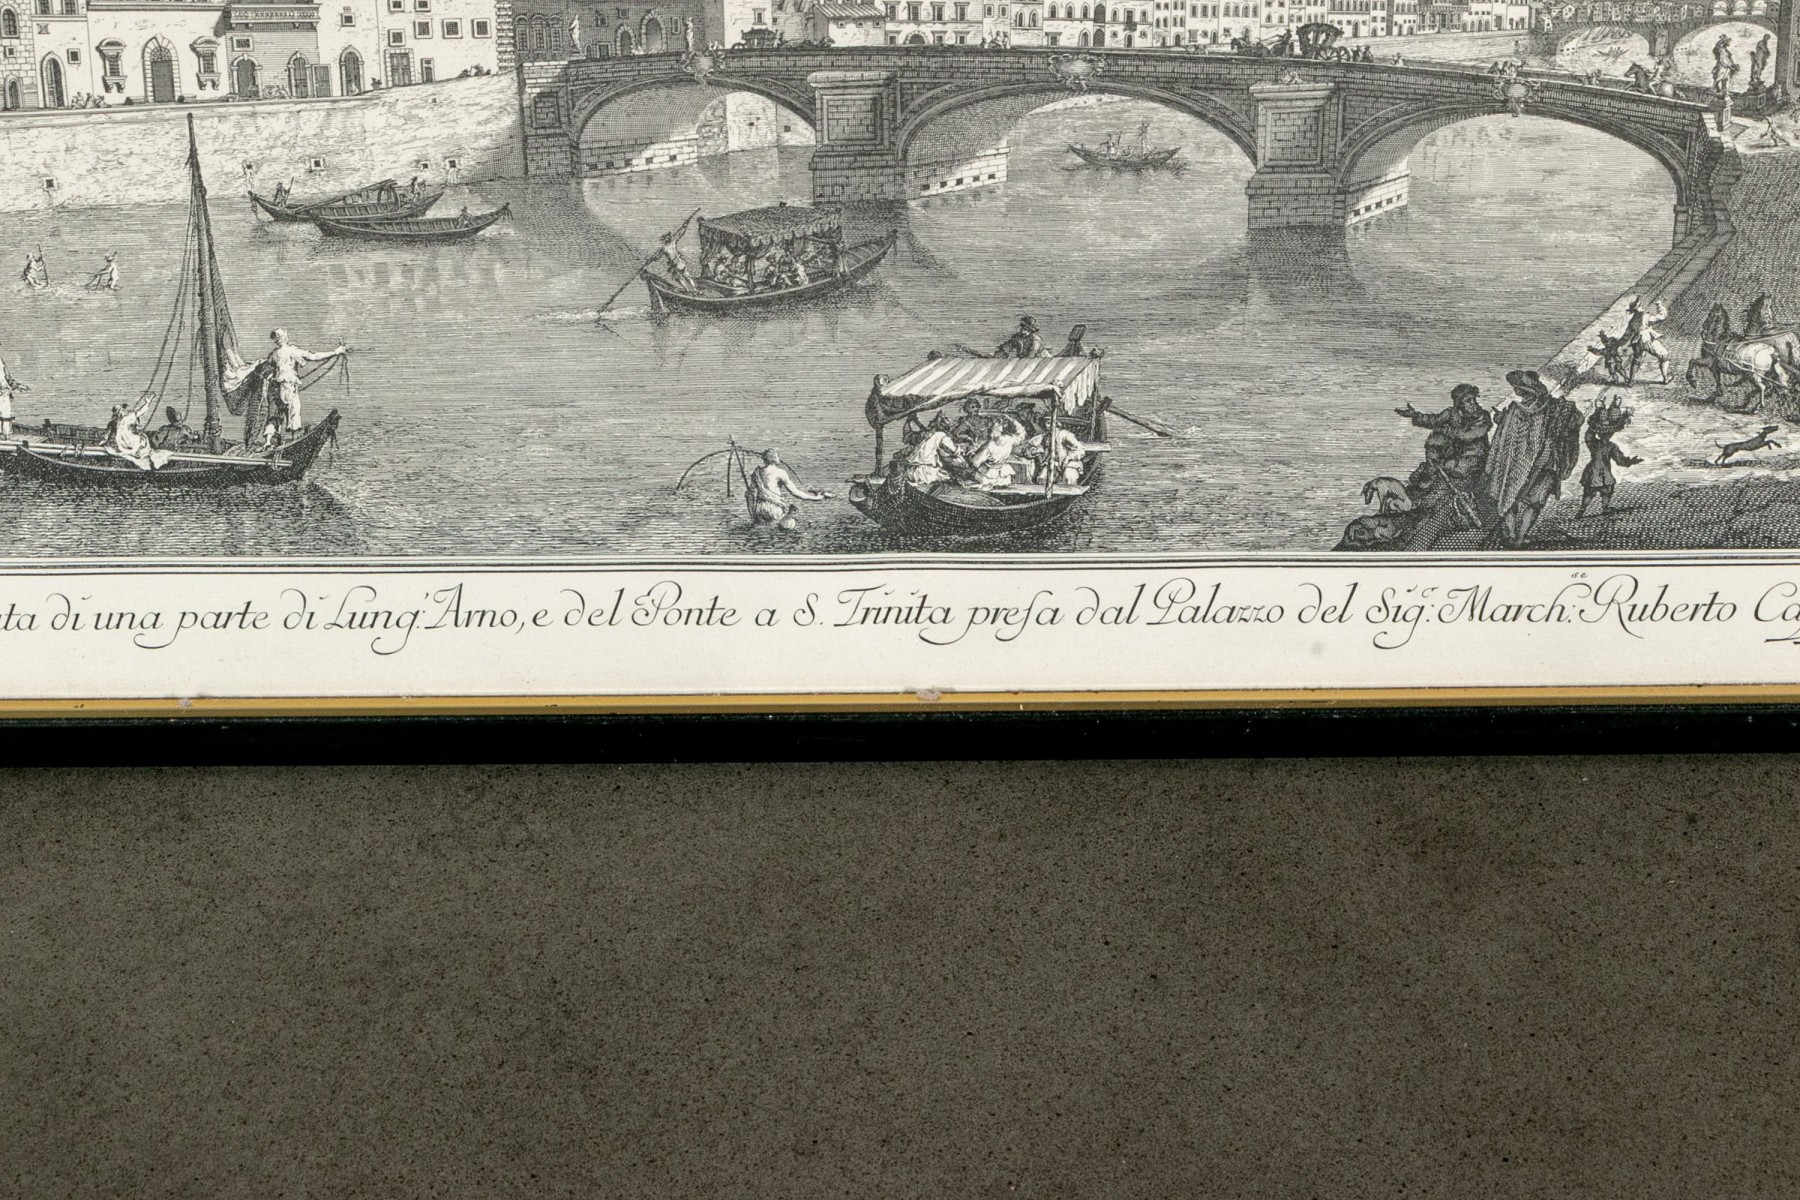 di una parte di Lung'. Arno, e del Ponte a S. Trinita presa dal Palazzo del Sig.ᵉ: March.ˢᵉ: Ruberto